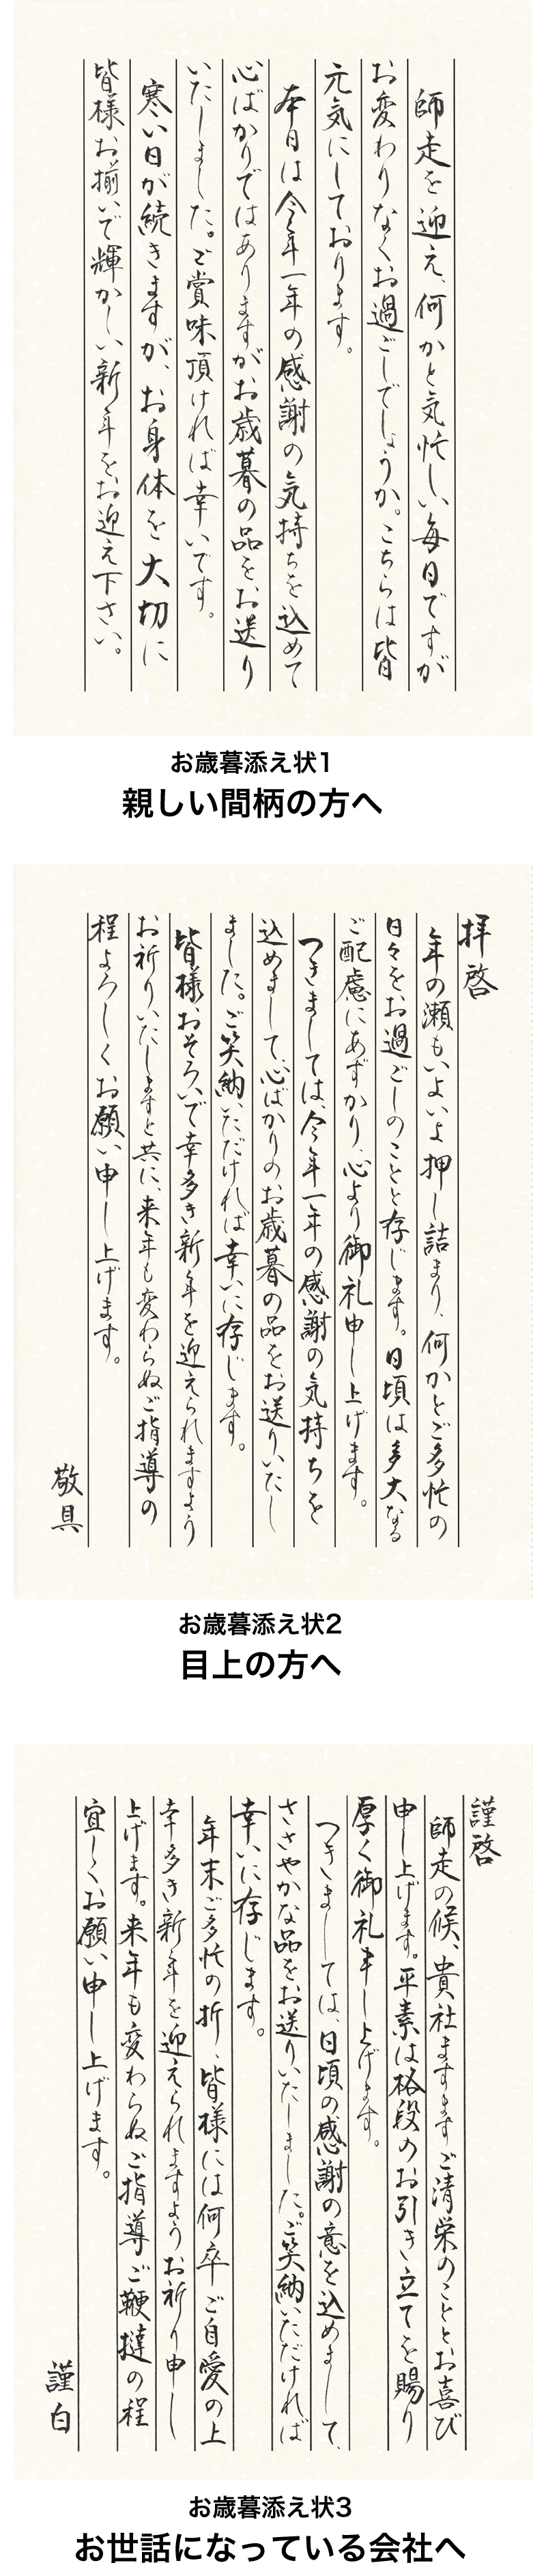 師走を迎え、何かと気忙しい毎日ですが
お変わりなくお過ごしでしょうか。こちらは皆
元気にしております。
本日は今年一年の感謝の気持ちを込めて
心ばかりではありますがお歳暮の品をお送り
いたしました。ご賞味頂ければ幸いです。
寒い日が続きますが、お身体を大切に
皆様お揃いで輝かしい新年をお迎え下さい。
お歳暮添え状1
親しい間柄の方へ
拝啓
年の瀬もいよいよ押し詰まり、何かとご多忙の
日々をお過ごしのことと存じます。日頃は多大なる
ご配慮にあずかり、心より御礼申し上げます。
つきましては、今年一年の感謝の気持ちを
込めまして、心ばかりのお歳暮の品をお送りいたし
ました。ご笑納いただければ幸いに存じます。
皆様おそろいで幸多き新年を迎えられますよう
お祈りいたしますと共に、来年も変わらぬご指導の
程よろしくお願い申し上げます。
敬具
お歳暮添え状2
目上の方へ
謹啓
師走の候、貴社ますますご清栄のこととお喜び
申し上げます。平素は格段のお引き立てを賜り
厚く御礼申し上げます。
つきましては、日頃の感謝の意を込めまして、
ささやかな品をお送りいたしました。ご笑納いただければ
幸いに存じます。
年末ご多忙の折、皆様には何卒ご自愛の上
幸多き新年を迎えられますようお祈り申し
上げます。来年も変わらぬご指導ご鞭撻の程
宜しくお願い申し上げます。
謹白
お歳暮添え状3
お世話になっている会社へ